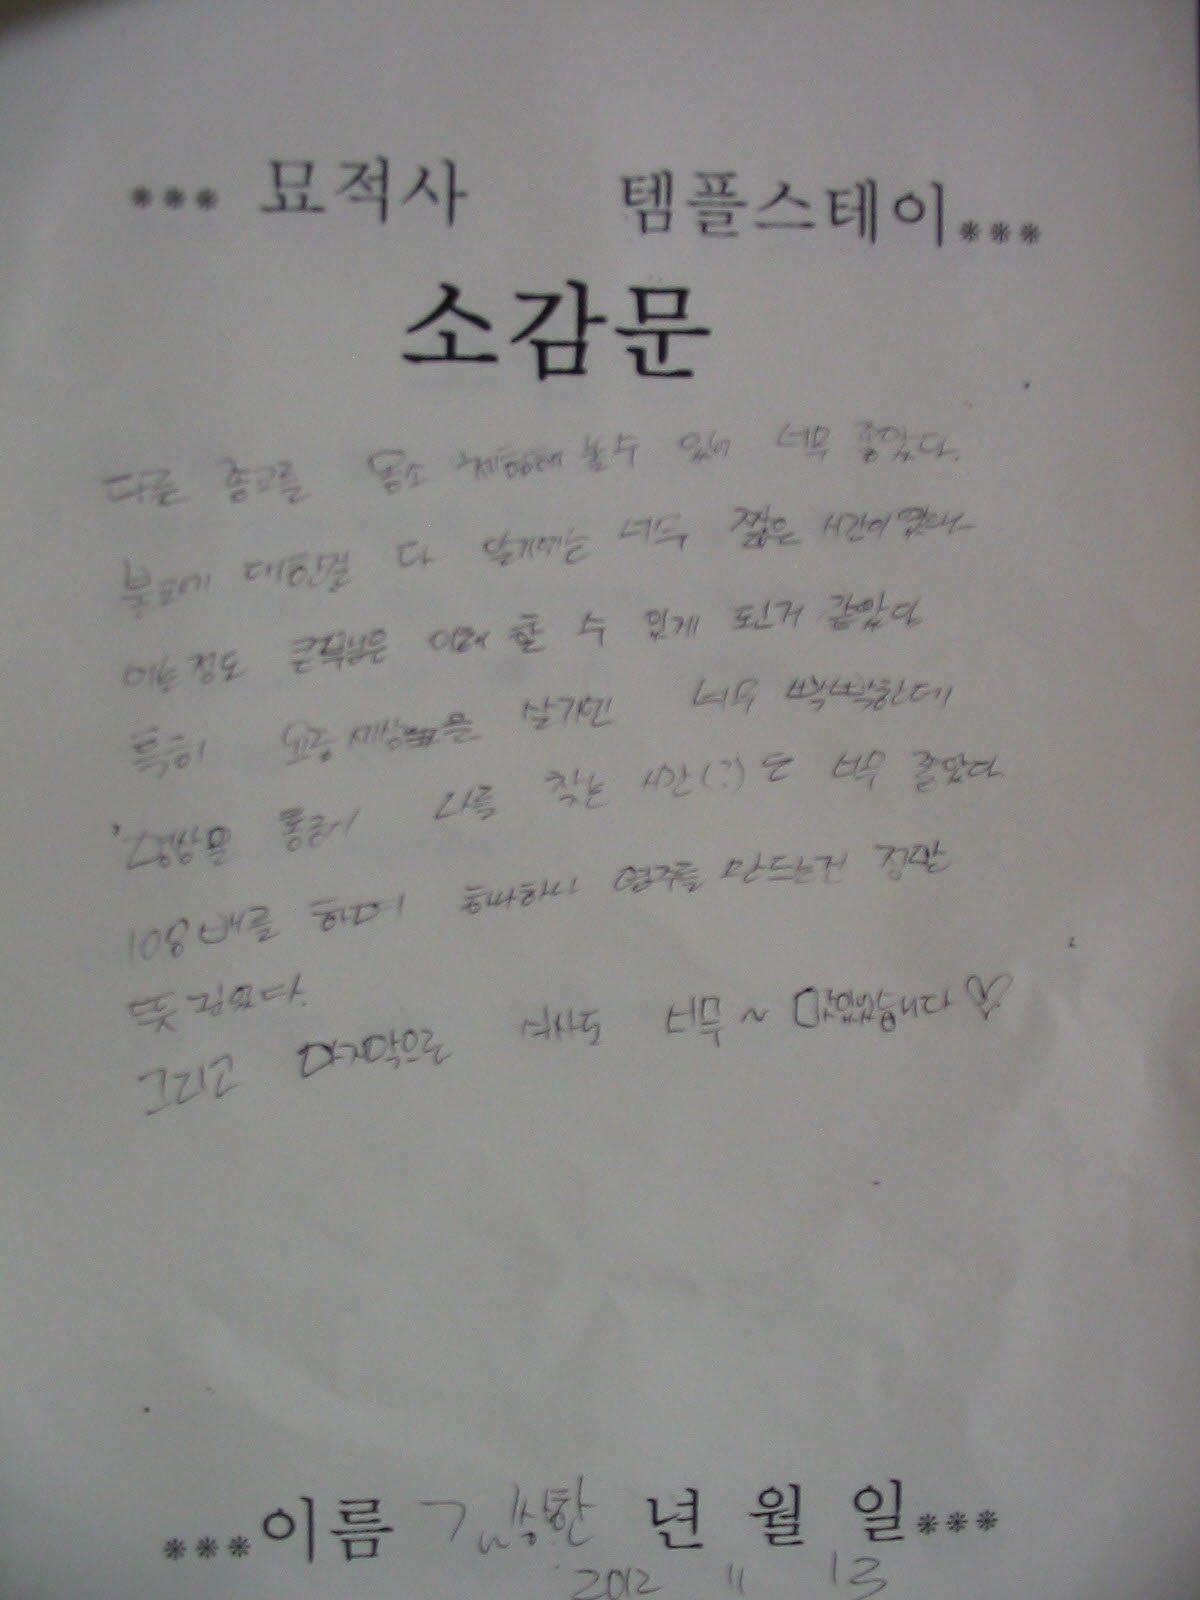 *** 묘적사 템플스테이***
소감문
다른 종교를 몸소 체험해 볼수 있어 너무 좋았다.
불교에 대한걸 다 알기에는 너무 짧은 시간이었으나
어느정도 큰부분은 이해 할 수 있게 된거 같았당
특히 요즘 세상을 살기엔 너무 빡빡한데
명상을 통해 나를 찾는 시간(?)은 너무 좋았다
108배를 하며 하나하나 염주를 만드는건 정말
뜻 깊었다.
그리고 마지막으로 식사도 너무~ 맛있었습니다♡
***이름 김상환 년 월 일***
2012 11 13